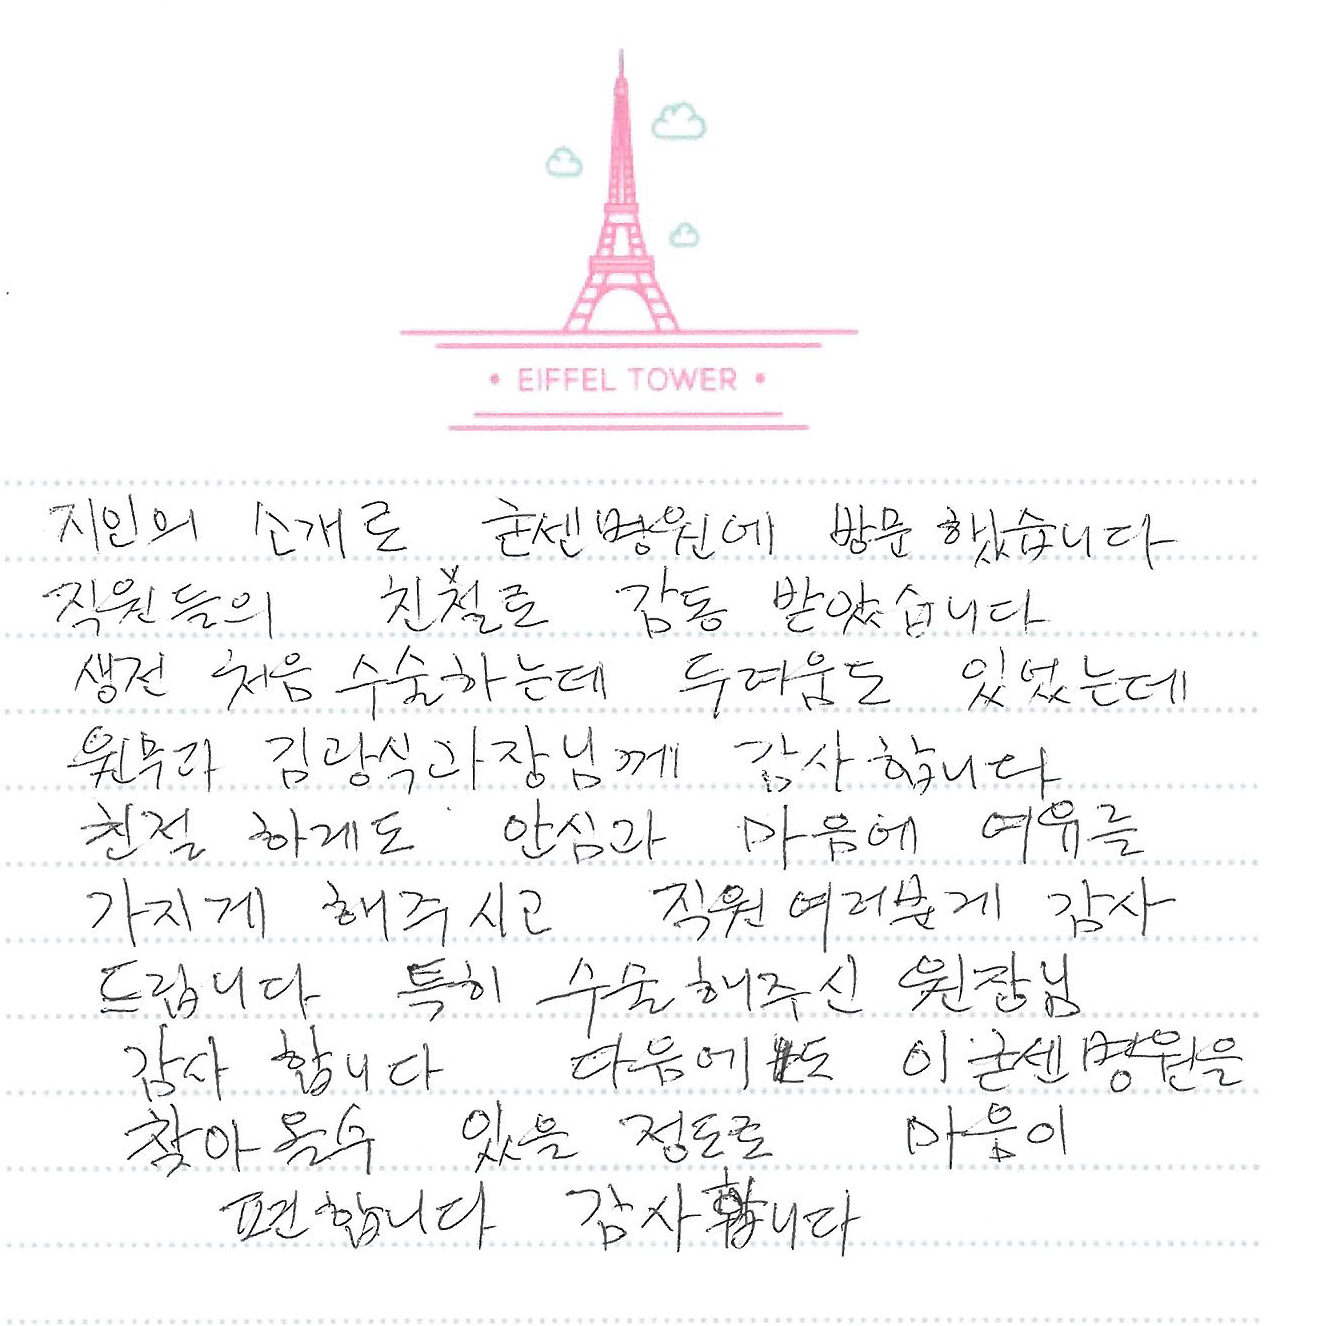 • EIFFEL TOWER •
지인의 소개로 굳센병원에 방문했습니다
직원들의 친절로 감동 받았습니다
생전 처음 수술하는데 두려움도 있었는데
원무과 김광식과장님께 감사합니다
친절 하게도 안심과 마음에 여유를
가지게 해주시고 직원여러분게 감사
드립니다 특히 수술해주신 원장님
감사 합니다 다음에도 이굳센병원을
찾아올수 있을 정도로 마음이
편합니다 감사합니다